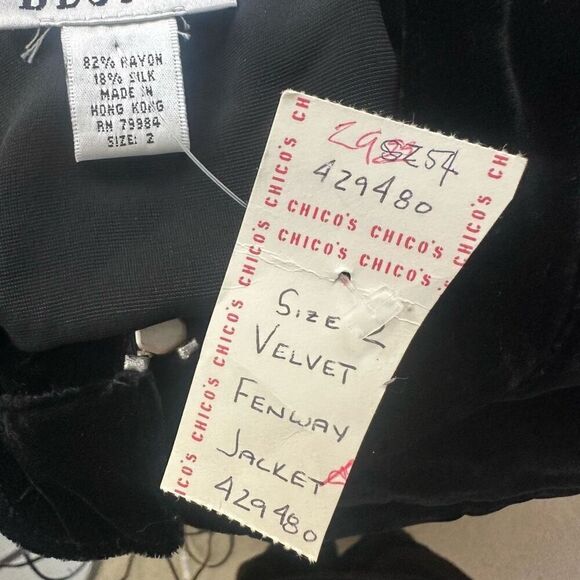 82% RAYON
18% SILK
MADE IN
HONG KONG
RN 79984
SIZE: 2
429480
CHICO'S CHICO'S CHICO'S
CHICO'S CHICO'S CHICO'S
SIZE 2
VELVET
FENWAY
JACKET
429480
CHICO'S CHICO'S CHICO'S CHICO'S CH
CHICO'S CH